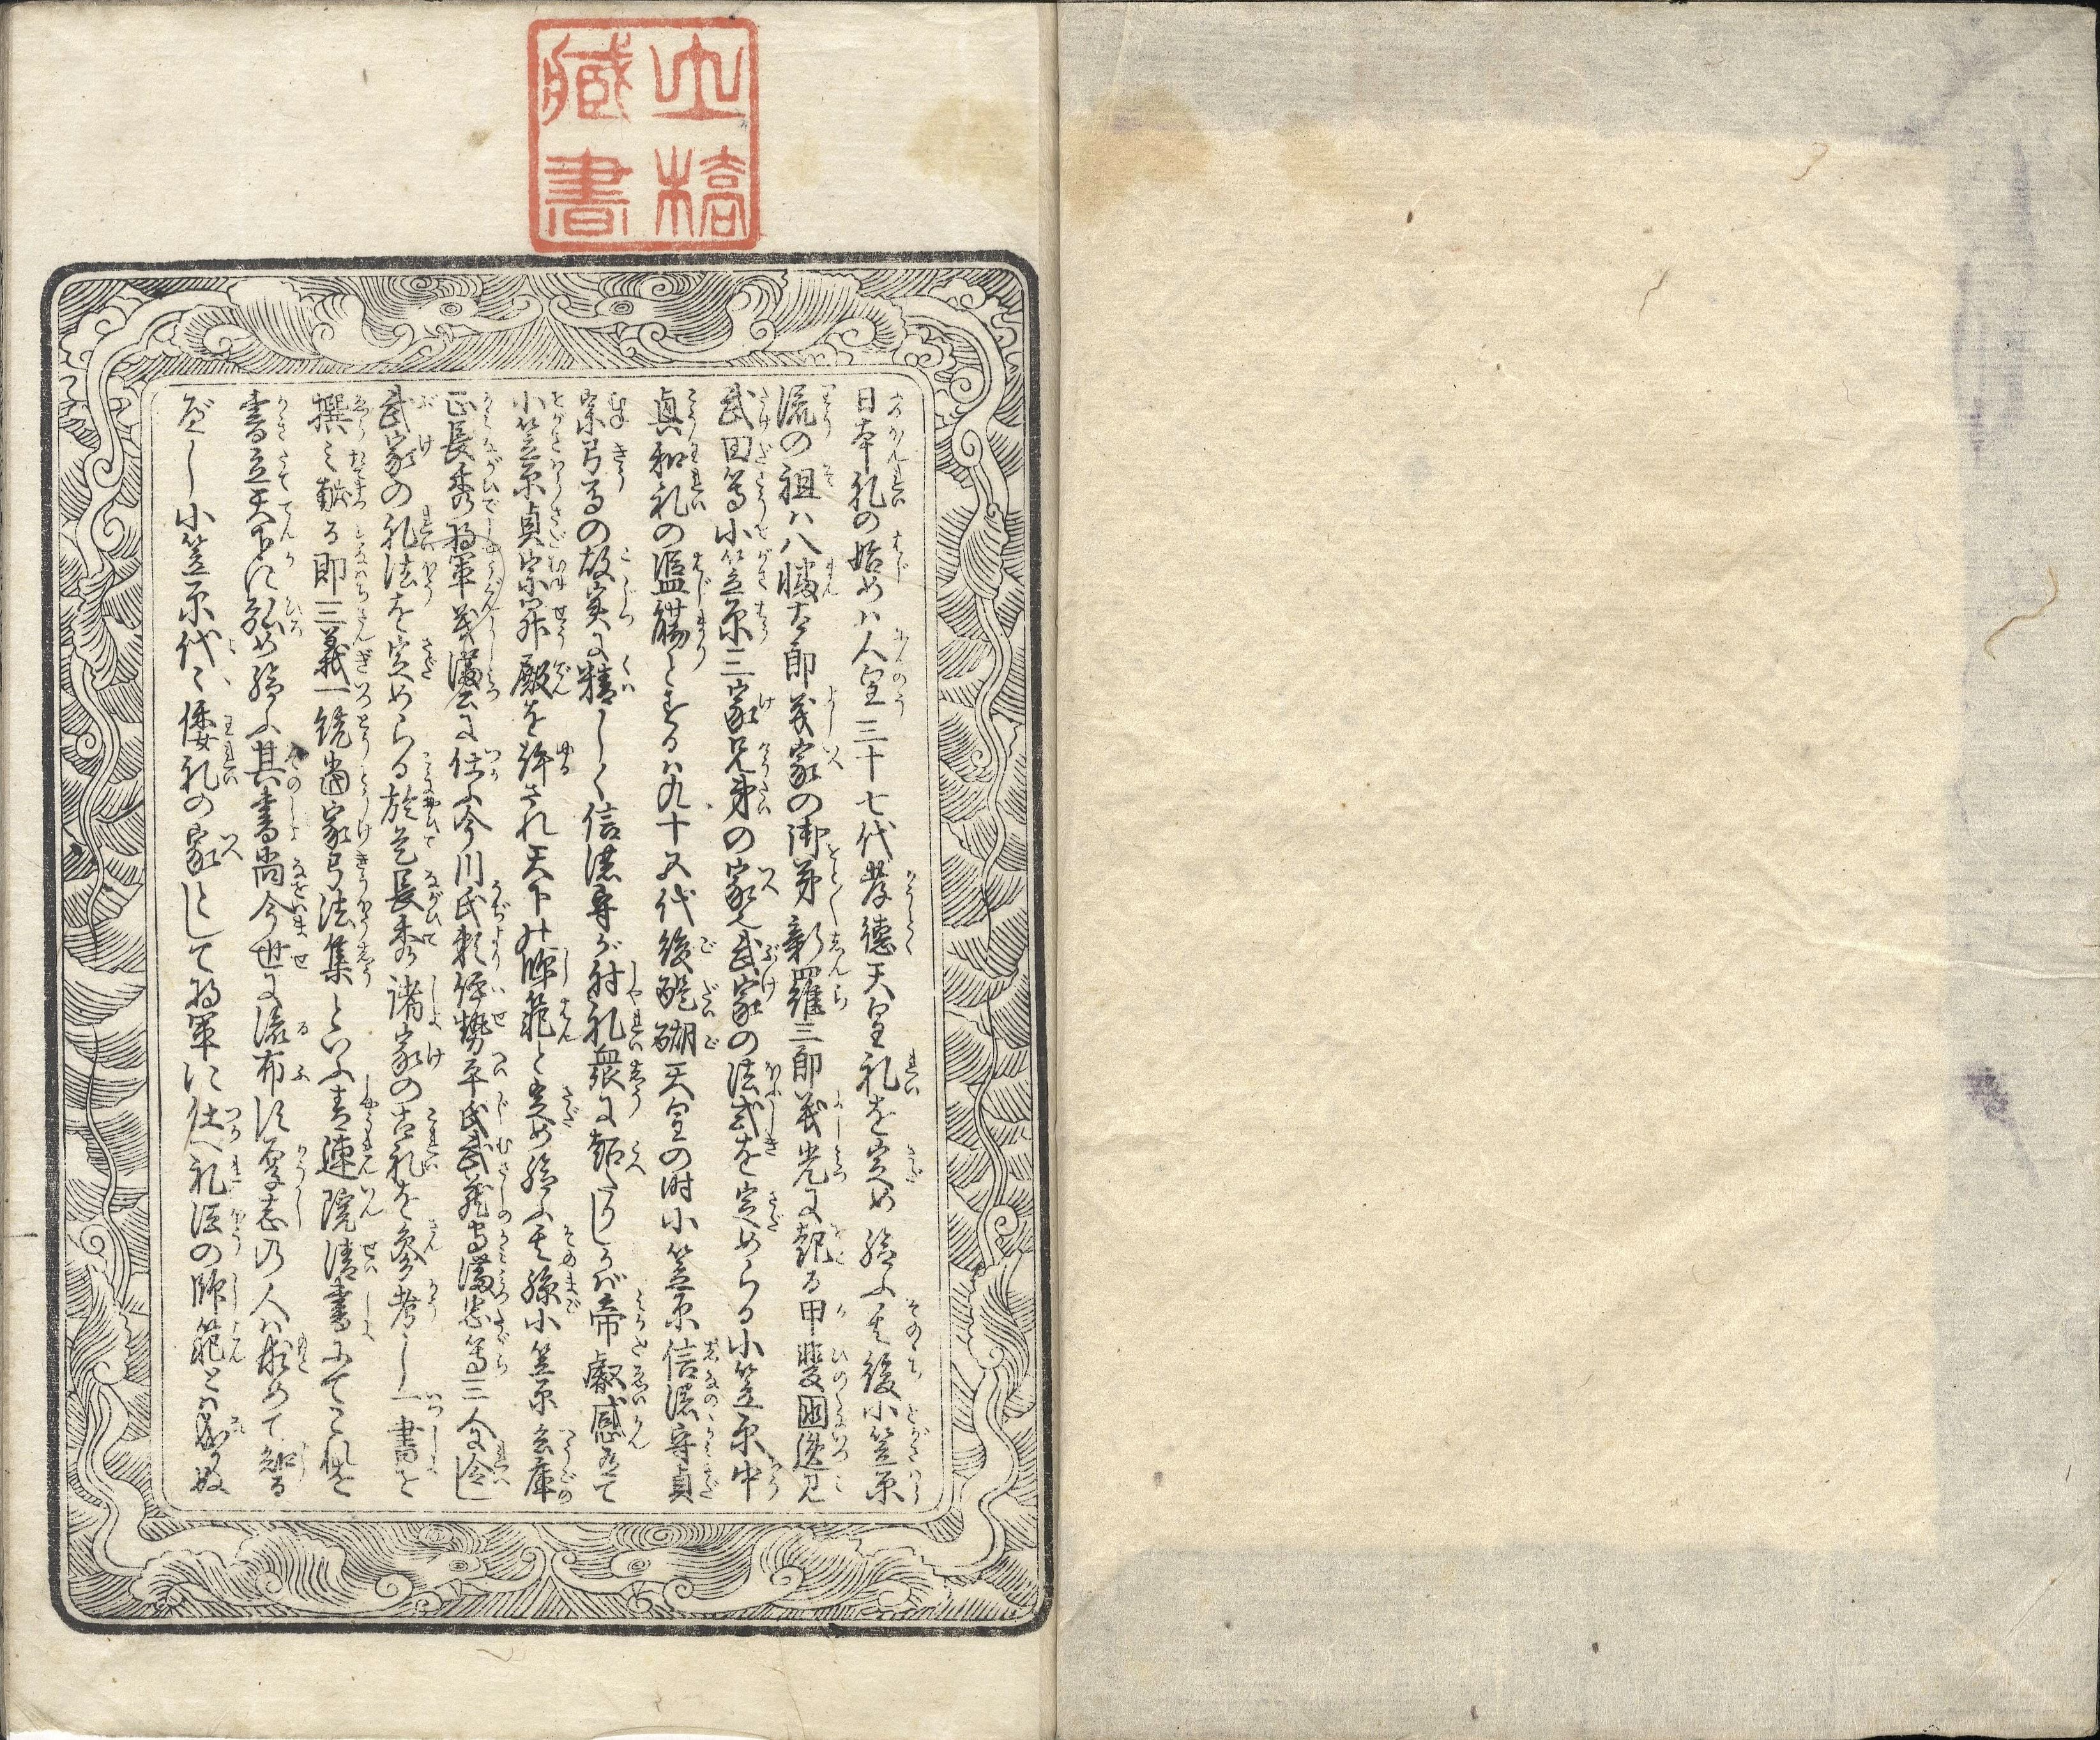 日本礼の始めハ人皇三十七代孝徳天皇礼を定め給ふ其後小笠原
流の祖ハ八幡太郎義家の御弟新羅三郎義光に起る甲斐国逸見
武田等小笠原三家兄弟の家へ武家の法式を定めらる小笠原中
真和礼の濫觴とするハ九十五代後醍醐天皇の時小笠原信濃守貞
宗弓馬の故実に精しく信濃守が射礼衆に超たりしかば帝叡感有て
小笠原貞宗昇殿を許され天下の師範と定め給ふ其孫小笠原兵庫
正長秀将軍義満公に仕ふ今川氏頼伊勢平氏武蔵守満忠等三人に令し
武家の礼法を定めらる於是長秀諸家の古礼を参考し一書を
撰ミ献る即三義一統當家弓法集といふ青連院清書にてこれを
書立天下に弘め給ふ其書尚今世に流布す厚志の人ハ求めて知る
べし小笠原代々倭礼の家として将軍に仕へ礼法の師範とハ成ぬ
藏書